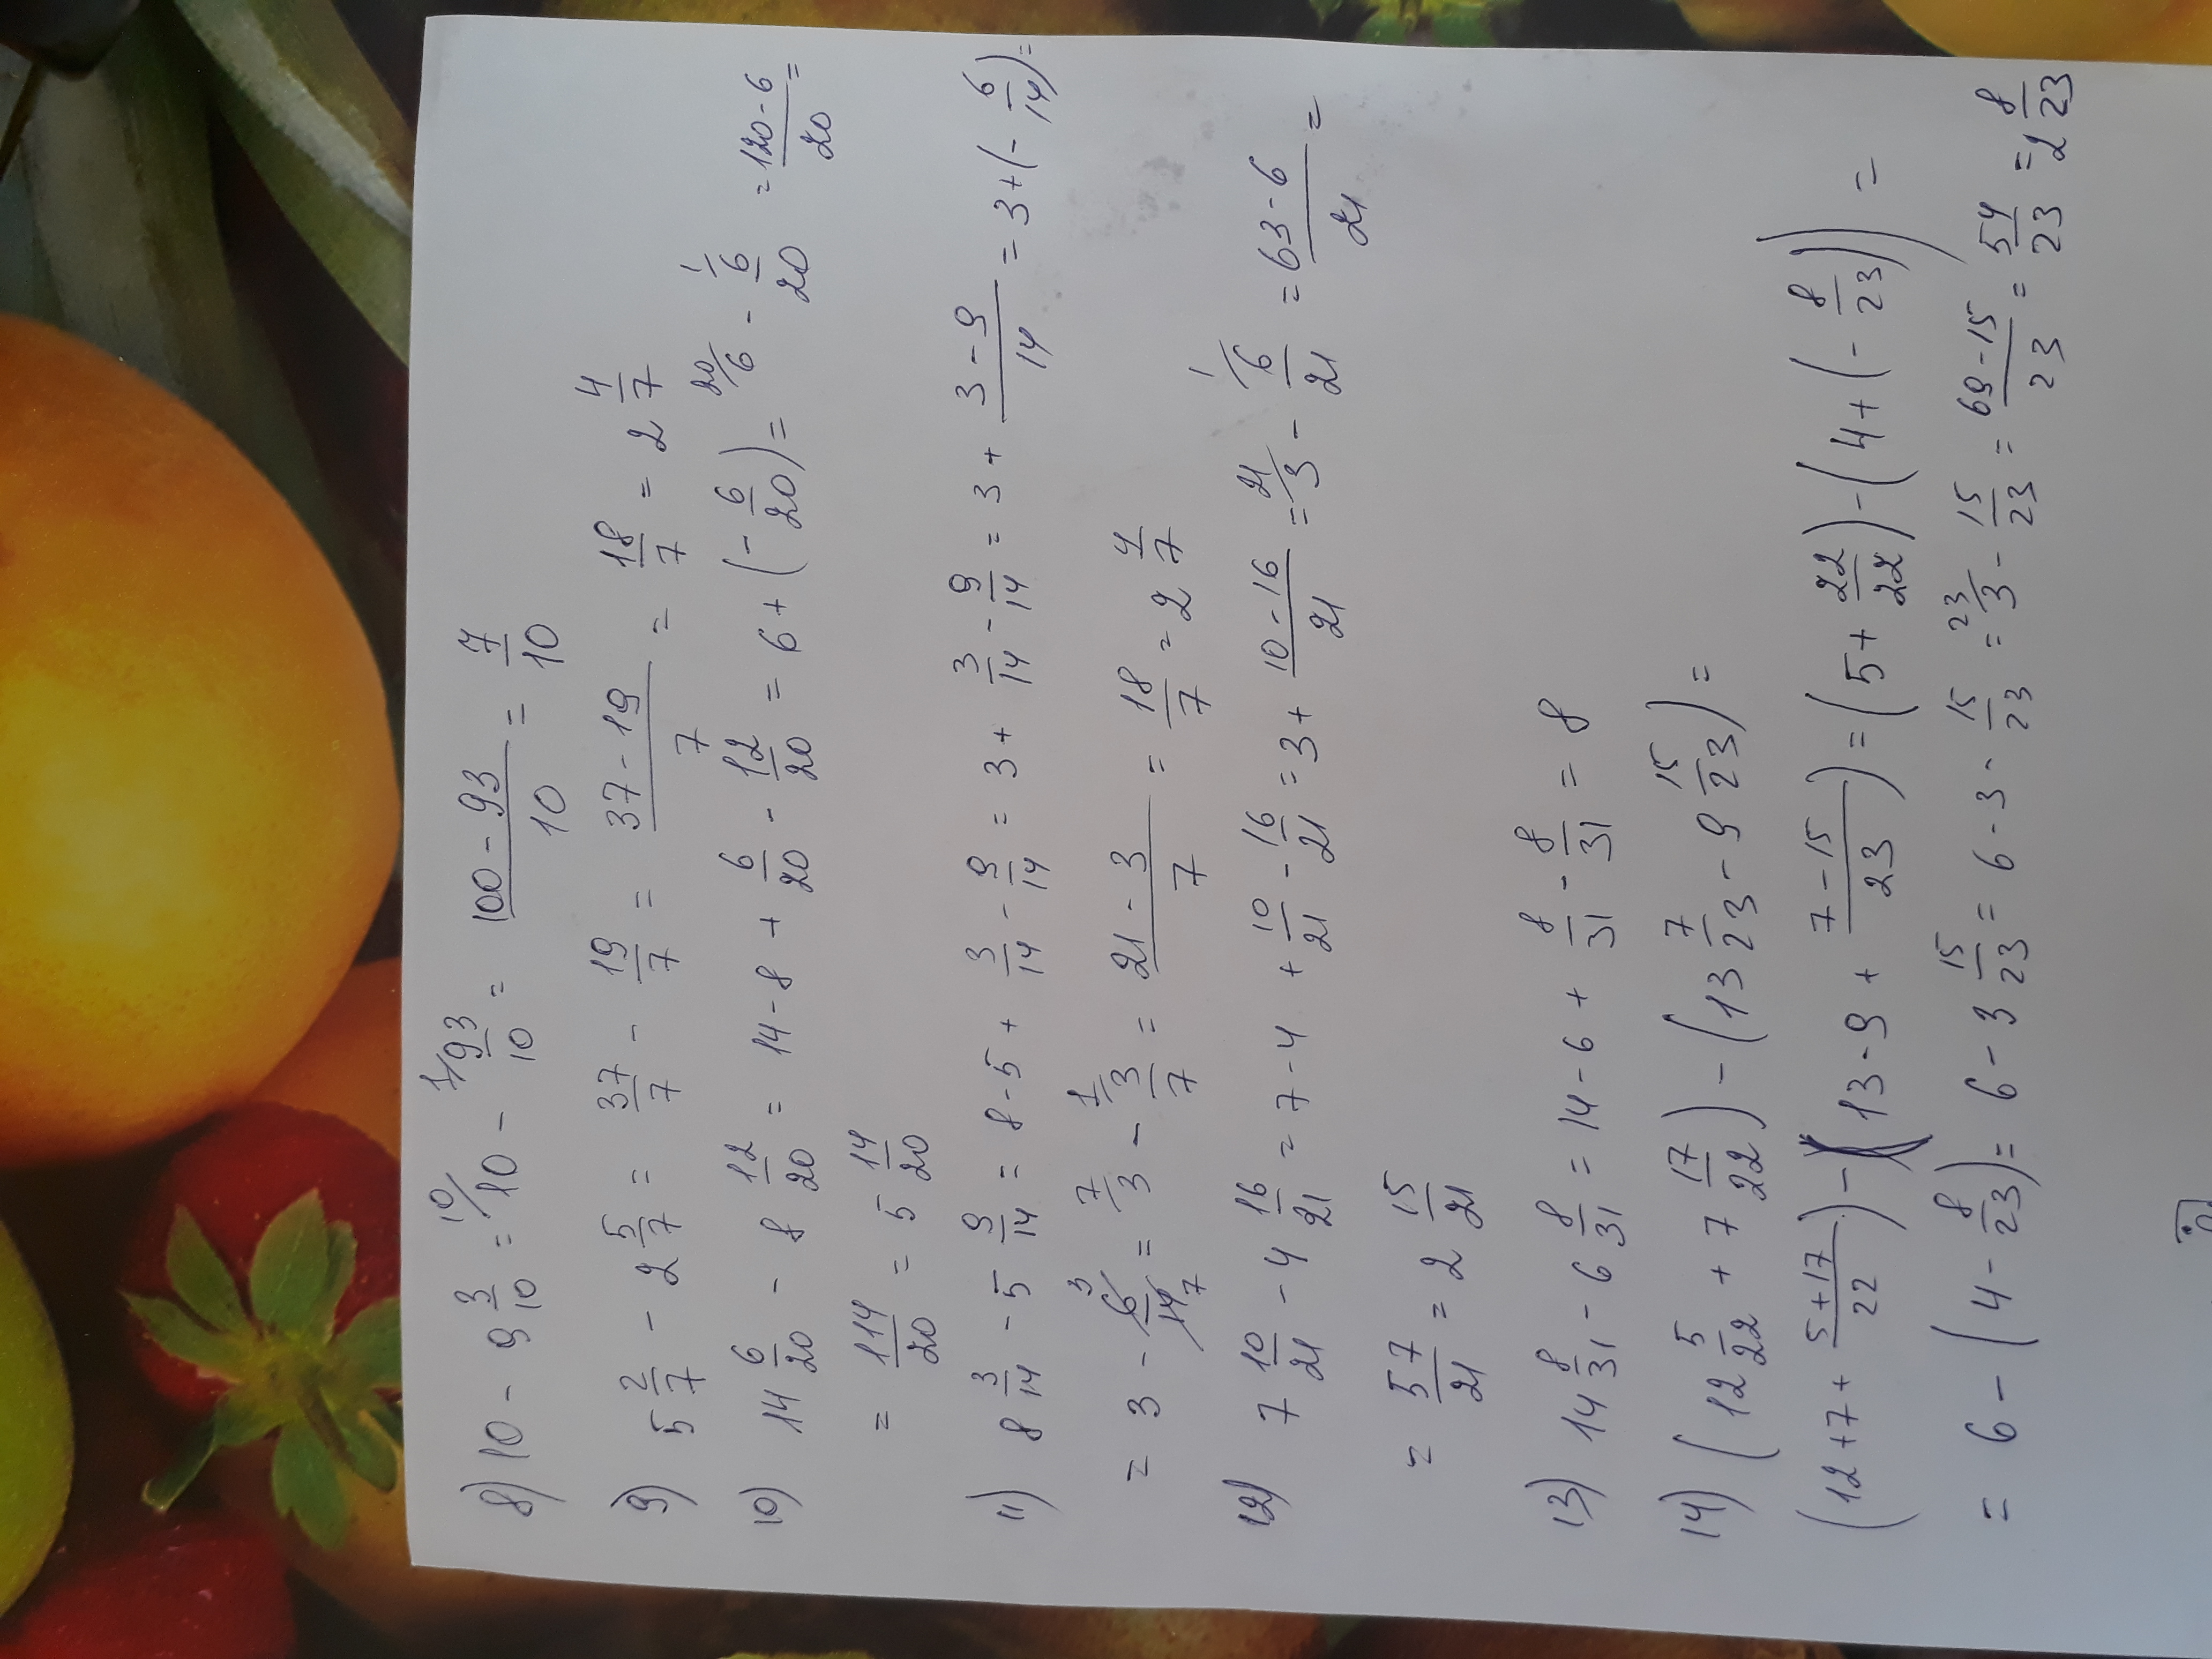 8) 10 - 9 3/10 = 10/ 10 - 1/ 93/10 = (100 - 93)/10 = 7/10
9) 5 2/7 - 2 5/7 = 37/7 - 19/7 = (37 - 19)/7 = 18/7 = 2 4/7
10) 14 6/20 - 8 12/20 = 14 - 8 + 6/20 - 12/20 = 6 + (- 6/20) = 20/ 6 - 1/ 6/20 = (120 - 6)/20 =
= 114/20 = 5 14/20
11) 8 3/14 - 5 9/14 = 8 - 5 + 3/14 - 9/14 = 3 + 3/14 - 9/14 = 3 + (3 - 9)/14 = 3 + (- 6/14) =
= 3 - 6/14 3 7 = 7/ 3 - 1/ 3/7 = (21 - 3)/7 = 18/7 = 2 4/7
12) 7 10/21 - 4 16/21 = 7 - 4 + 10/21 - 16/21 = 3 + (10 - 16)/21 = 21/ 3 - 1/ 6/21 = (63 - 6)/21 =
= 57/21 = 2 15/21
13) 14 8/31 - 6 8/31 = 14 - 6 + 8/31 - 8/31 = 8
14) (12 5/22 + 7 17/22) - (13 7/23 - 9 15/23) =
(12 + 7 + (5 + 17)/22) - (13 - 9 + (7 - 15)/23) = (5 + 22/22) - (4 + (- 8/23)) =
= 6 - (4 - 8/23) = 6 - 3 15/23 = 6 - 3 - 15/23 = 23/ 3 - 15/23 = (69 - 15)/23 = 54/23 = 2 8/23